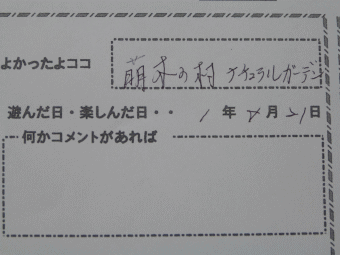 よかったよココ 萌木の村 ナチュラルガーデン
遊んだ日・楽しんだ日・・ 1年 8月21日
何かコメントがあれば